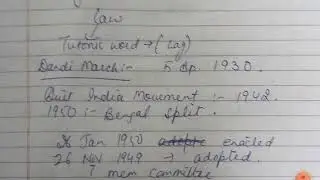 law
Tutonic word → (Lag)
Dandi March :- 5 Ap. 1930.
Quit India Movement :- 1942.
1950 :- Bengal split.
26 Jan 1950 adopte enacted
26 Nov 1949 → adopted.
7 mem committee